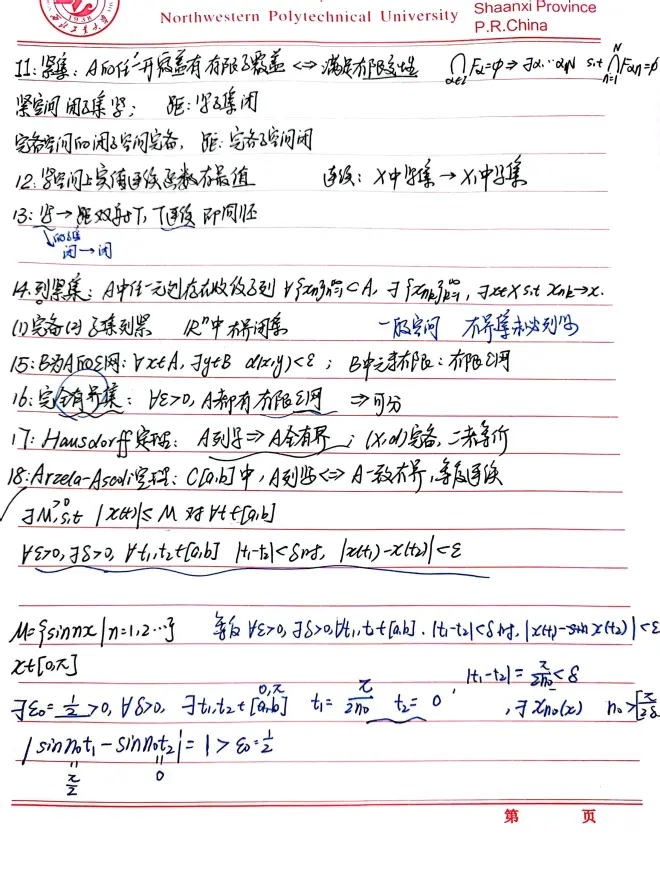 Northwestern Polytechnical University
Shaanxi Province
P.R.China
11: 紧集: A的任一开覆盖有有限子覆盖 <=> 满足有限交性 ⋂_{α∈I} Fα=φ ⇒ ∃α1…αN s.t ⋂_{n=1}^{N} Fαn=φ
紧空间 闭子集紧; 距: 紧子集闭
完备空间的闭子空间完备, 距: 完备子空间闭
12: 紧空间上实值连续函数有最值 连续: X中紧集 → X1中紧集
13: 紧 → 距 双射T, T连续 即同胚
的子集
闭 → 闭
14. 列紧集: A中任一元列存在收敛子列 ∀{xn}_{n=1}^{∞}⊂A, ∃{xnk}_{k=1}^{∞}, ∃x∈X s.t xnk→x.
(1)完备 (2)子集列紧 ℝ^n中有界闭集 一般空间 有界集未必列紧
15: B为A的ε网: ∀x∈A, ∃y∈B d(x,y)<ε ; B中元素有限: 有限ε网
16: 完全有界集: ∀ε>0, A都有有限ε网 ⇒ 可分
17: Hausdorff定理: A列紧 ⇒ A全有界 ; (X,d)完备, 二者等价
18: Arzela-Ascoli定理: C[a,b]中, A列紧 <=> A一致有界, 等度连续
∃M>0, s.t |x(t)|≤M 对∀t∈[a,b]
∀ε>0, ∃δ>0, ∀t1,t2∈[a,b] |t1-t2|<δ时, |x(t1)-x(t2)|<ε
M={sinnx | n=1,2…} 等度 ∀ε>0, ∃δ>0, ∀t1,t2∈[a,b]. |t1-t2|<δ时, |x(t1)-x(t2)|<ε
x∈[0,π]
|t1-t2|=π/2n0<δ
∃ε0=1/2>0, ∀δ>0, ∃t1,t2∈[0,π] t1=π/2n0 t2=0, ∃xn0(x) n0>[π/2δ
|sinn0t1-sinn0t2|=1>ε0=1/2
π/2 0
第 页